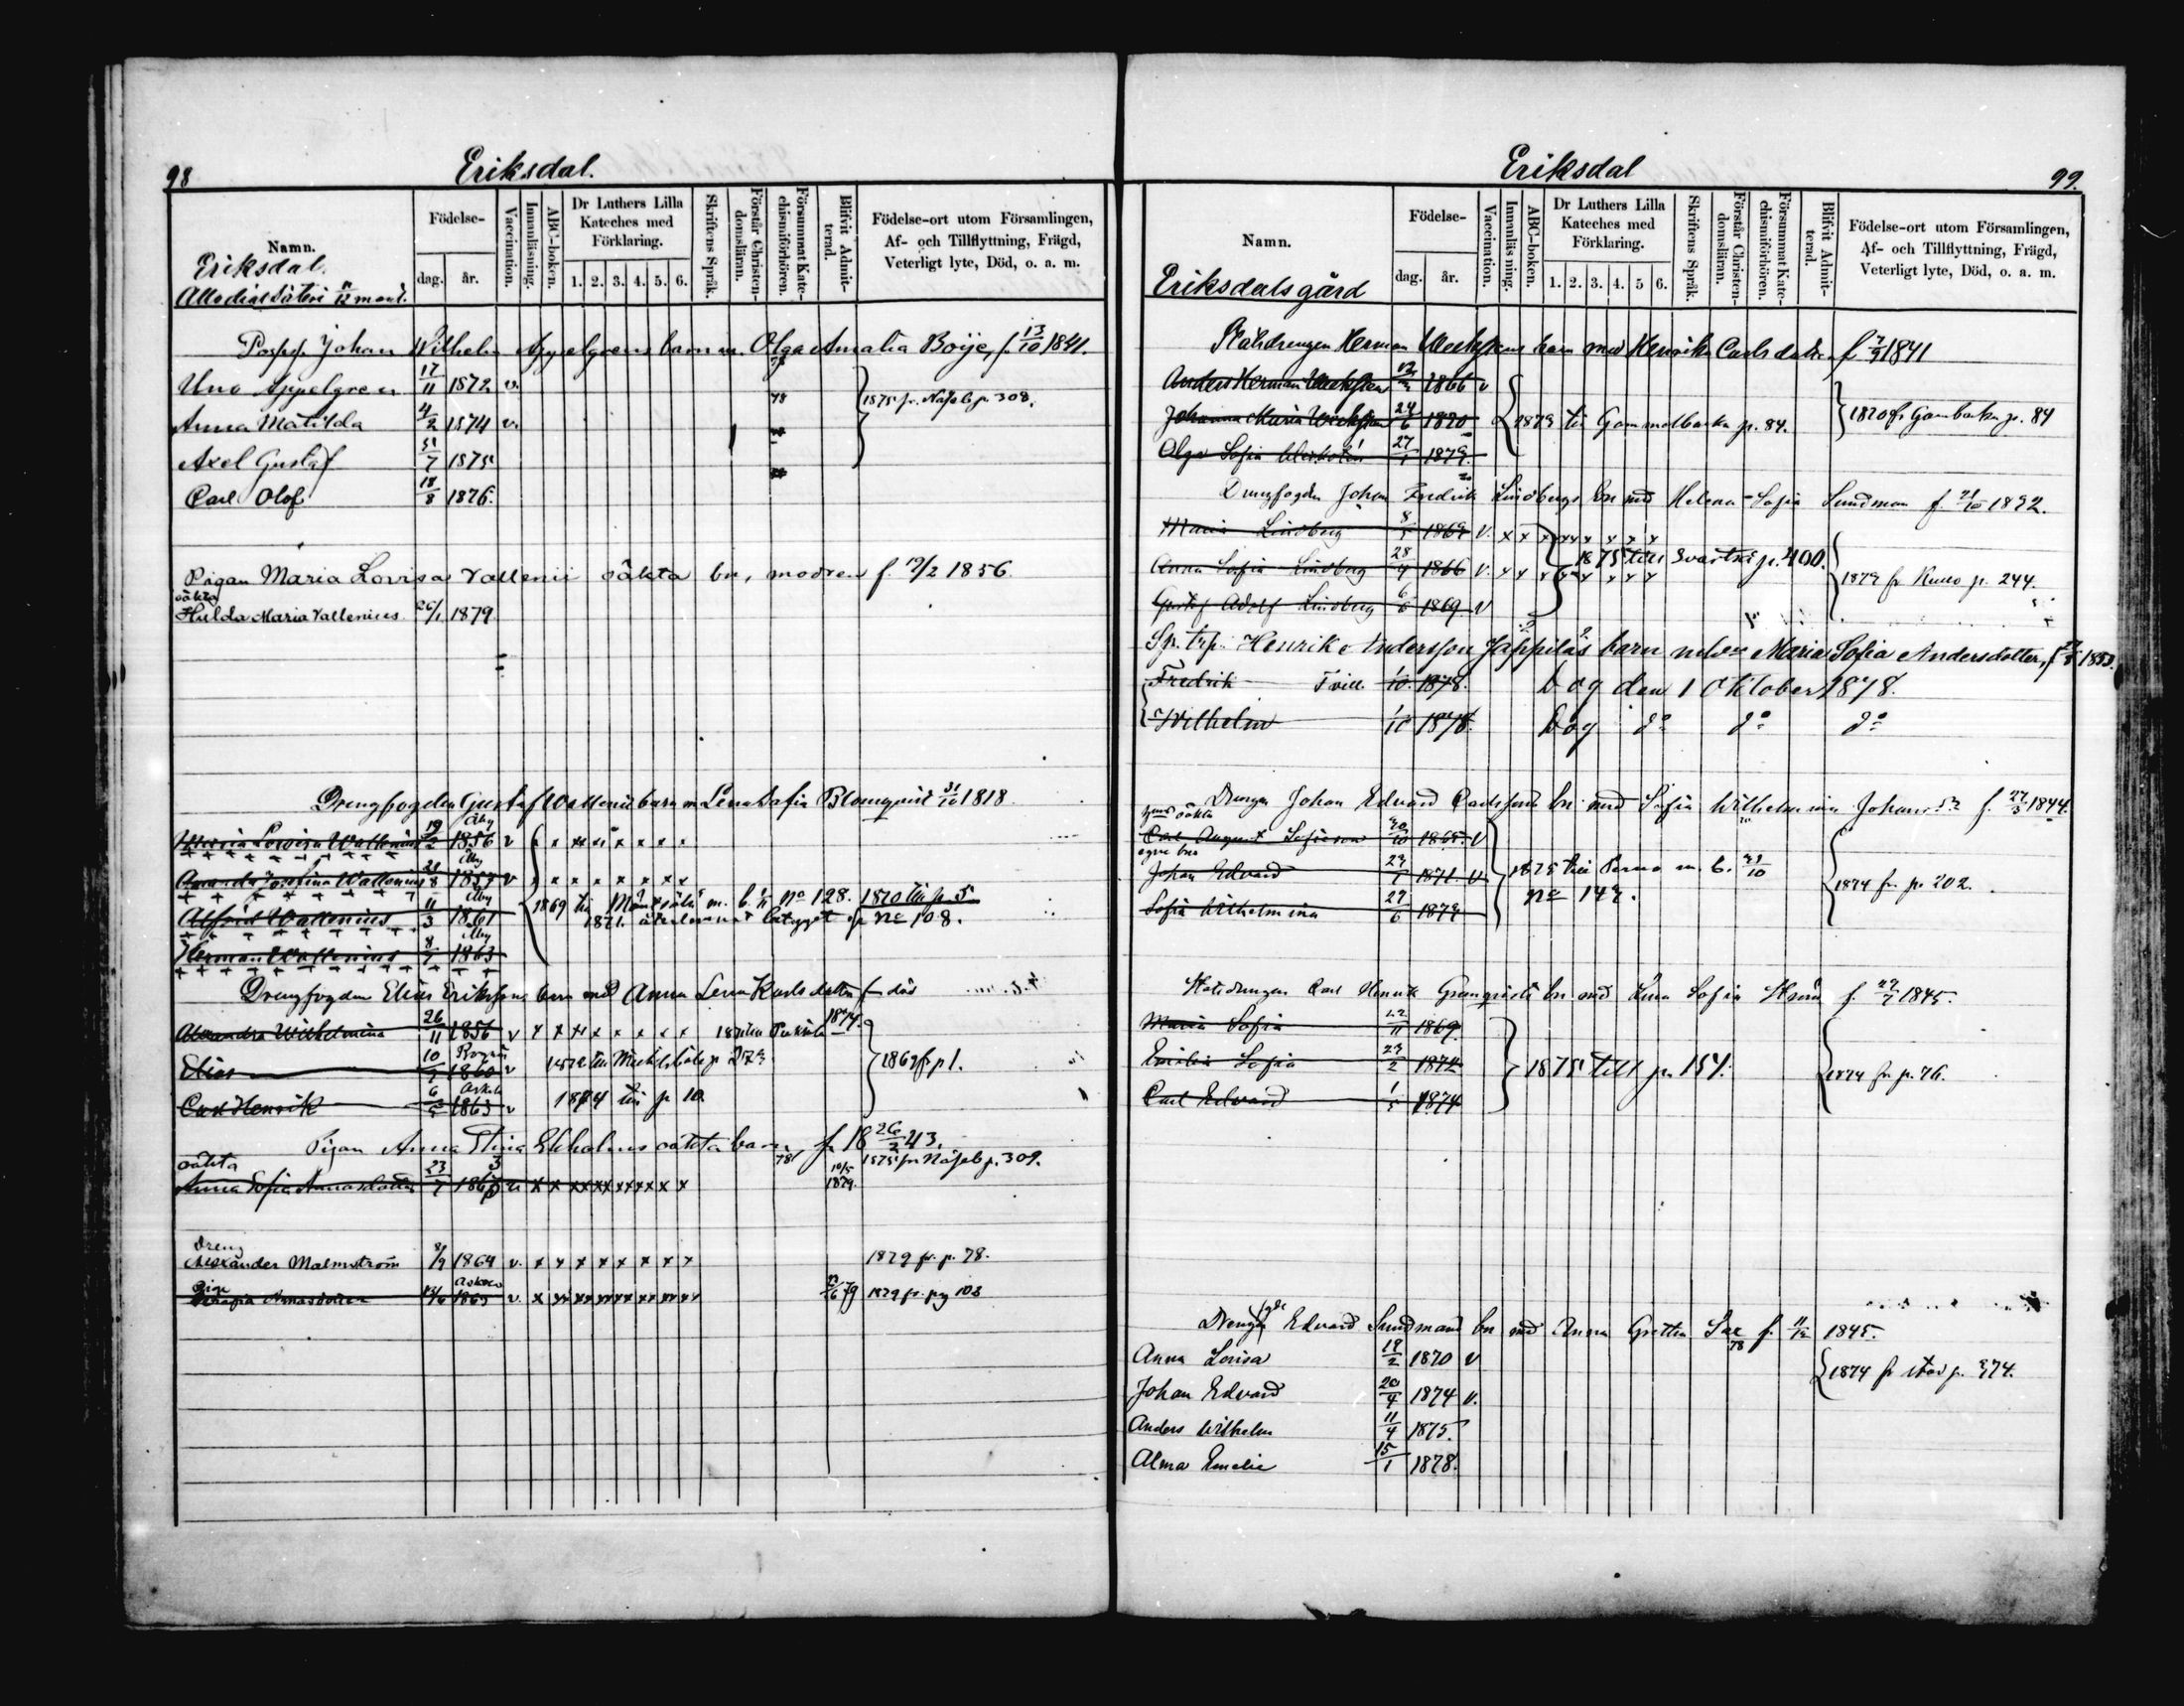 98
Eriksdal.
Namn.
Eriksdal.
Allodial Säteri 11/12 mant.
Födelse-
dag.
år.
Vaccination.
Innanläsning.
ABC-boken.
Dr Luthers Lilla
Kateches med
Förklaring.
1. 2. 3. 4. 5. 6.
Skriftens Språk.
Förstår Christen-
domsläran.
Försummat Kate-
chismiförhören.
Blifvit Admit-
terad.
Födelse-ort utom Församlingen,
Af- och Tillflyttning, Frägd,
Veterligt lyte, Död, o. a. m.
Johan Wilhelm Appelgrens barn m. Olga Amalia Boije, f. 13/10 1841.
Uno Appelgren 17/11 1872 v.
1875 fr. Näseb p. 308.
Anna Matilda 4/2 1874 v. 78
Axel Gustaf 31/7 1875
Carl Olof 18/8 1876.
Pigan Maria Lovisa Vallenii oäkta bn, modren f. 19/2 1856.
oäkta
Hulda Maria Vallenius 26/1 1879.
Drengfogden Gustaf Wallenii barn m Lena Sofia Blomqvist 31/10 1818
Åby
Maria Lovisa Wallenius 19/2 1856 v x x xx x x x x x
Åby
Amanda Josefina Wallenius 21/8 1857 v x x x x x x x x
Åby
Alfrid Wallenius 11/3 1861
1869 till Mäntsälä m. b. No 128. 1870 till p 5
1871. återlemnat betyget p No 108.
Åby
Herman Wallenius 8/7 1863
Drengfogden Elias Erikssons barn med Anna Lena Karlsdotter död
Alexandra Wilhelmina 26/11 1856 v x x x x x x x x 1874.
Elias 10/7 1860 v
1869 fr p 1.
Askola
Carl Henrik 6/5 1863 v 1874 till p 10
Pigan Anna Stina Ekholms oäkta barn f. 18 26/2 43.
oäkta 78 1875 fr Näseb p. 309.
Anna Sofia Annasdotter 23/7 1863 10/5 1879.
Dreng
Alexander Malmström 8/9 1864 v. x x x x x x x x 1879 fr. p. 78.
Pige Askola
Serafia Annasdotter 1863 v. 79 1879 fr. pag 108
Eriksdal
99.
Namn.
Eriksdalsgård
Födelse-
dag.
år.
Vaccination.
Innanläsning.
ABC-boken.
Dr Luthers Lilla
Kateches med
Förklaring.
1. 2. 3. 4. 5 6.
Skriftens Språk.
Förstår Christen-
domsläran.
Försummat Kate-
chismiförhören.
Blifvit Admit-
terad.
Födelse-ort utom Församlingen,
Af- och Tillflyttning, Frägd,
Veterligt lyte, Död, o. a. m.
Statdrengen Herman barn med Henrika Carlsdotter f 1841
Anders Herman 1866 v
Johanna Maria 24/6 1870 1879 till Gammelbacka p. 84. 1870 fr Gambacka p. 84
Olga Sofia 27/1 1879.
Drengfogden Johan Fredrik Lindbergs bn med Helena Sofia Sundman f. 21/10 1832.
Maria Lindberg v. x x
1875 till Svartså p. 400.
Anna Sofia Lindberg 28/4 1866 v. x x
1873 fr Kullo p. 244.
Gustaf Adolf Lindberg 6/6 1869 v
Sp. trp. Henrik Andersson Jäppiläs barn m. Maria Sofia Andersdotter, f. 1853.
Fredrik Tvill. 1/10 1878. Dog den 1 Oktober 1878.
Wilhelm 1/10 1878. Dog do do do
Drengen Johan Edvard Carlssons bn med Sofia Wilhelmina Johansdr f. 27/3 1844.
oäkta
Carl August Sofiason 1865. v
egne bn
Johan Edvard 1871. v 1875 till Perno m. b. 31/10
No 143. 1874 fr. p. 202.
Sofia Wilhelmina 1873
Statdrengen Carl Henrik Granqvists bn med Lina Sofia f. 27/7 1845.
Maria Sofia 22/11 1869
Emilia Sofia 23/2 1872 1875 till p. 154. 1874 fr. p. 76.
Carl Edvard 1/5 1874
Drengfgde Edvard Sundmans bn med Anna Gretta f. 11/12 1845.
78
Anna Lovisa 19/2 1870 v
1874 fr p. 374.
Johan Edvard 20/4 1874 v.
Anders Wilhelm 11/4 1875.
Alma Emelie 15/1 1878.